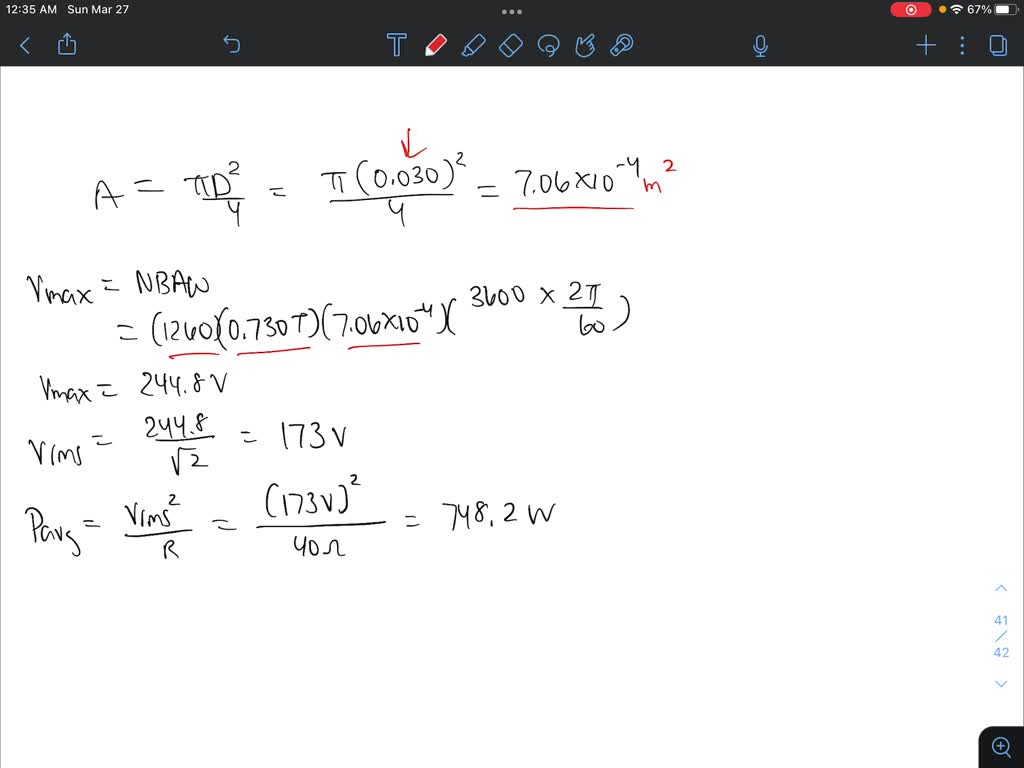 12:35 AM Sun Mar 27
67%
T
A = πD²/4 = π(0.030)²/4 = 7.06×10⁻⁴ m²
Vmax = NBAW
= (1260)(0.730T)(7.06×10⁻⁴)(3600 × 2π/60)
Vmax = 244.8 V
Vrms = 244.8/√2 = 173 V
Pavg = Vrms²/R = (173V)²/40Ω = 748.2 W
41
/
42